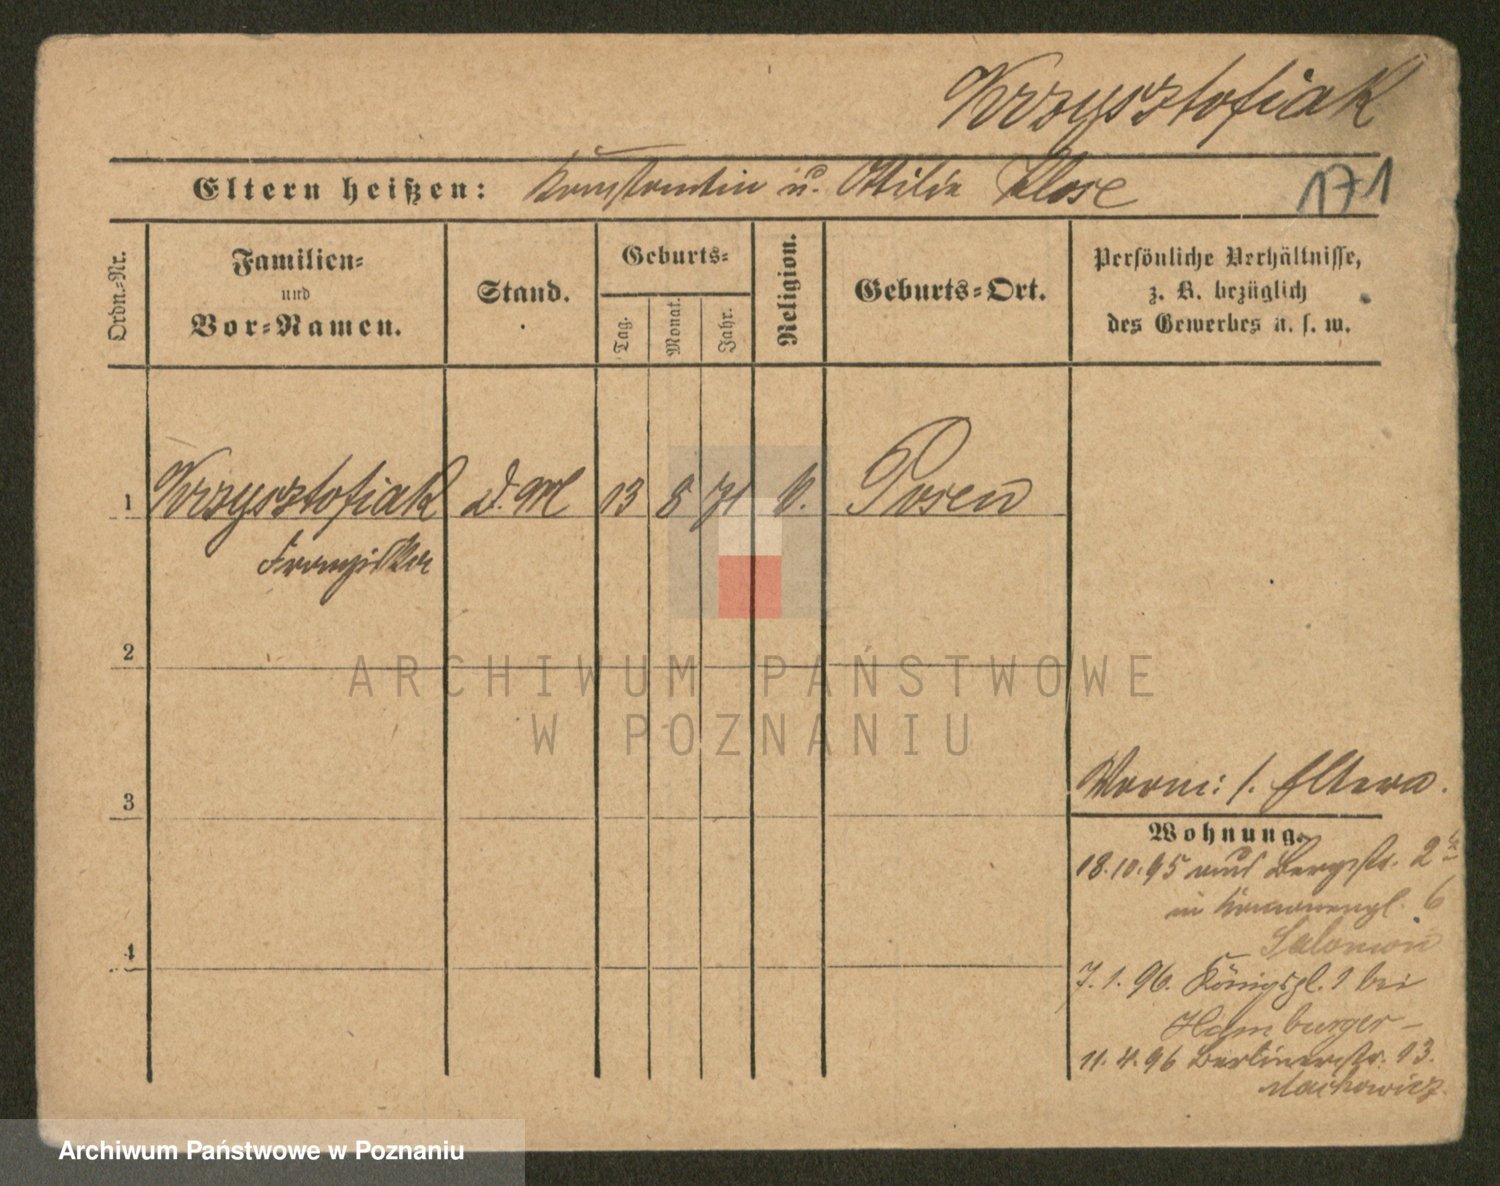 Krzysztofiak
Eltern heißen: Konstantin u. Ottilie Klose 171
Ordn.-Nr.
Familien-
und
Vor-Namen.
Stand.
Geburts-
Tag.
Monat.
Jahr.
Religion.
Geburts-Ort.
Persönliche Verhältnisse,
z. B. bezüglich
des Gewerbes u. s. w.
1 Krzysztofiak d. M 13 8 71 k. Posen
Franziska
2
3
4
ARCHIWUM PAŃSTWOWE
W POZNANIU
Eltern.
Wohnung.
18.10.95 aus Bergstr. 2
6
Salomon
7.1.96. Königspl. 1 bei
Hamburger
11.4.96 Berlinerstr. 13.
Maćkowicz
Archiwum Państwowe w Poznaniu